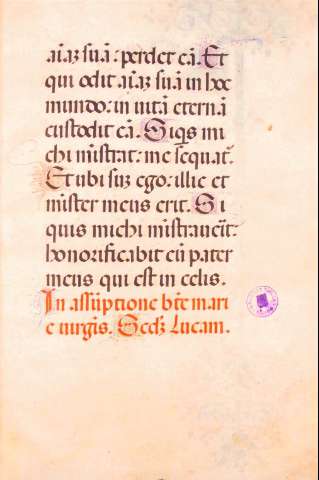 aīaz suā: perdet eā. Et
qui odit aīaz suā in hoc
mundo: in uitā eternā
custodit eā. Siqs mi
chi mīstrat: me sequat᷑.
Et ubi suz ego: illic et
mīster meus erit. Si
quis michi mīstrauerit:
honorificabit eū pater
meus qui est in celis.
In assūptione bte mari
e uirgīs. Secdz Lucam.